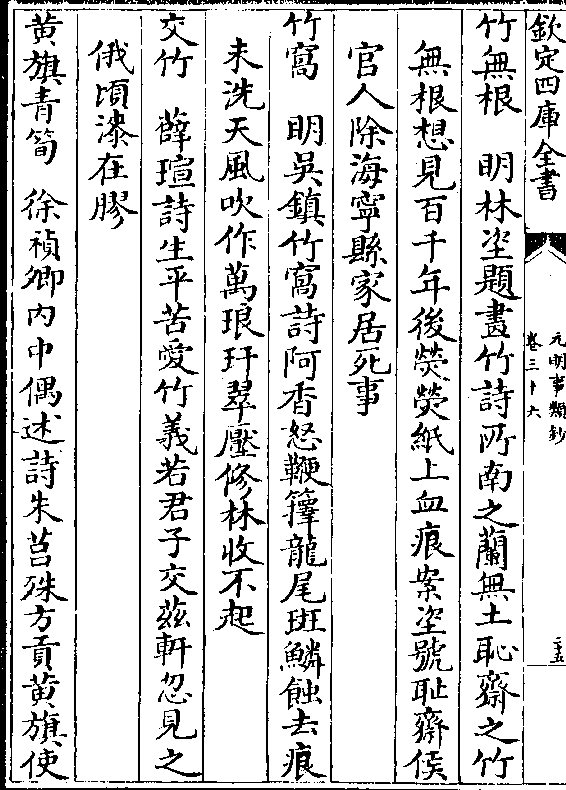 欽定四庫全書
元明事類鈔
卷三十六
二五
竹無根　明林垐題畫竹詩所南之蘭無土恥齋之竹
無根想見百千年後熒熒紙上血痕案垐號耻齋侯
官人除海寧縣家居死事
竹窩　明吳鎮竹窩詩阿香怒鞭籜龍尾班鱗蝕去痕
未洗天風吹作萬琅玕翠壓修林收不起
交竹　薛瑄詩生平苦愛竹義若君子交茲軒忽見之
俄頃漆在膠
黄旗青筍　徐禎卿内中偶述詩朱苢殊方貢黄旗使